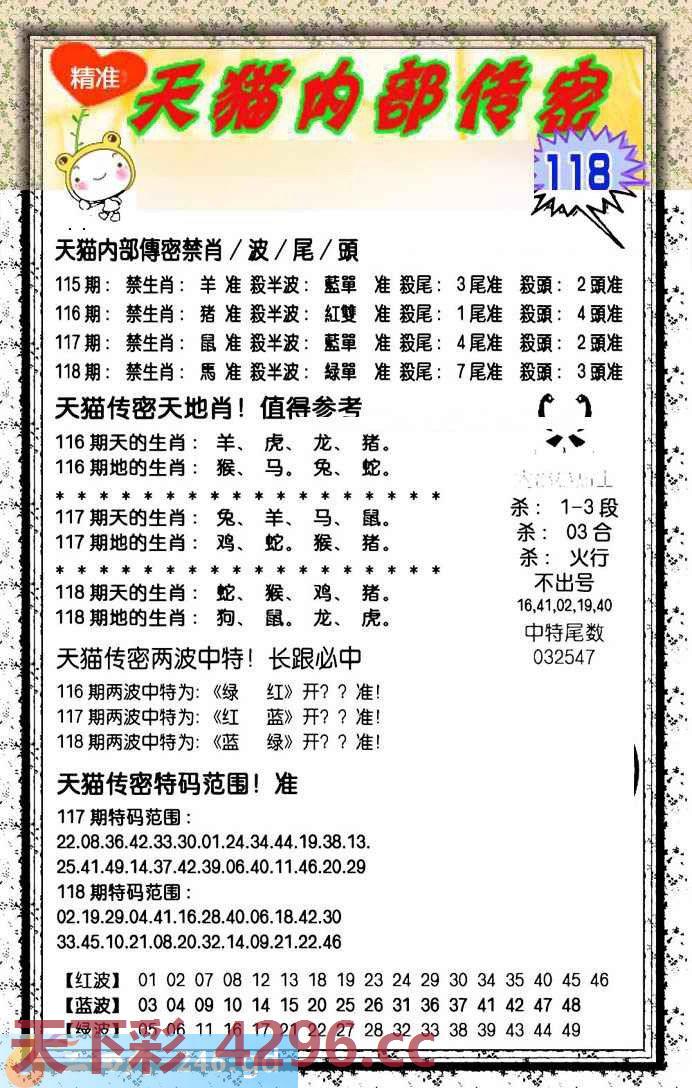 精准
天猫内部传密
118
天猫内部傳密禁肖/波/尾/頭
115期: 禁生肖: 羊 准 殺半波: 藍單 准 殺尾: 3尾准 殺頭: 2頭准
116期: 禁生肖: 猪 准 殺半波: 紅雙 准 殺尾: 1尾准 殺頭: 4頭准
117期: 禁生肖: 鼠 准 殺半波: 藍單 准 殺尾: 4尾准 殺頭: 2頭准
118期: 禁生肖: 馬 准 殺半波: 緑單 准 殺尾: 7尾准 殺頭: 3頭准
天猫传密天地肖! 值得参考
116期天的生肖: 羊、 虎、 龙、 猪。
116期地的生肖: 猴、 马。 兔、 蛇。
* * * * * * * * * * * * * * * * * *
117期天的生肖: 兔、 羊、 马、 鼠。
117期地的生肖: 鸡、 蛇。 猴、 猪。
* * * * * * * * * * * * * * * * * *
118期天的生肖: 蛇、 猴、 鸡、 猪。
118期地的生肖: 狗、 鼠。 龙、 虎。
杀: 1-3段
杀: 03合
杀: 火行
不出号
16,41,02,19,40
中特尾数
032547
天猫传密两波中特! 长跟必中
116期两波中特为:《绿 红》开? ? 准!
117期两波中特为:《红 蓝》开? ? 准!
118期两波中特为:《蓝 绿》开? ? 准!
天猫传密特码范围! 准
117期特码范围:
22.08.36.42.33.30.01.24.34.44.19.38.13.
25.41.49.14.37.42.39.06.40.11.46.20.29
118期特码范围:
02.19.29.04.41.16.28.40.06.18.42.30
33.45.10.21.08.20.32.14.09.21.22.46
【红波】 01 02 07 08 12 13 18 19 23 24 29 30 34 35 40 45 46
【蓝波】 03 04 09 10 14 15 20 25 26 31 36 37 41 42 47 48
【绿波】 05 06 11 16 17 21 22 27 28 32 33 38 39 43 44 49
天下彩 4296.cc